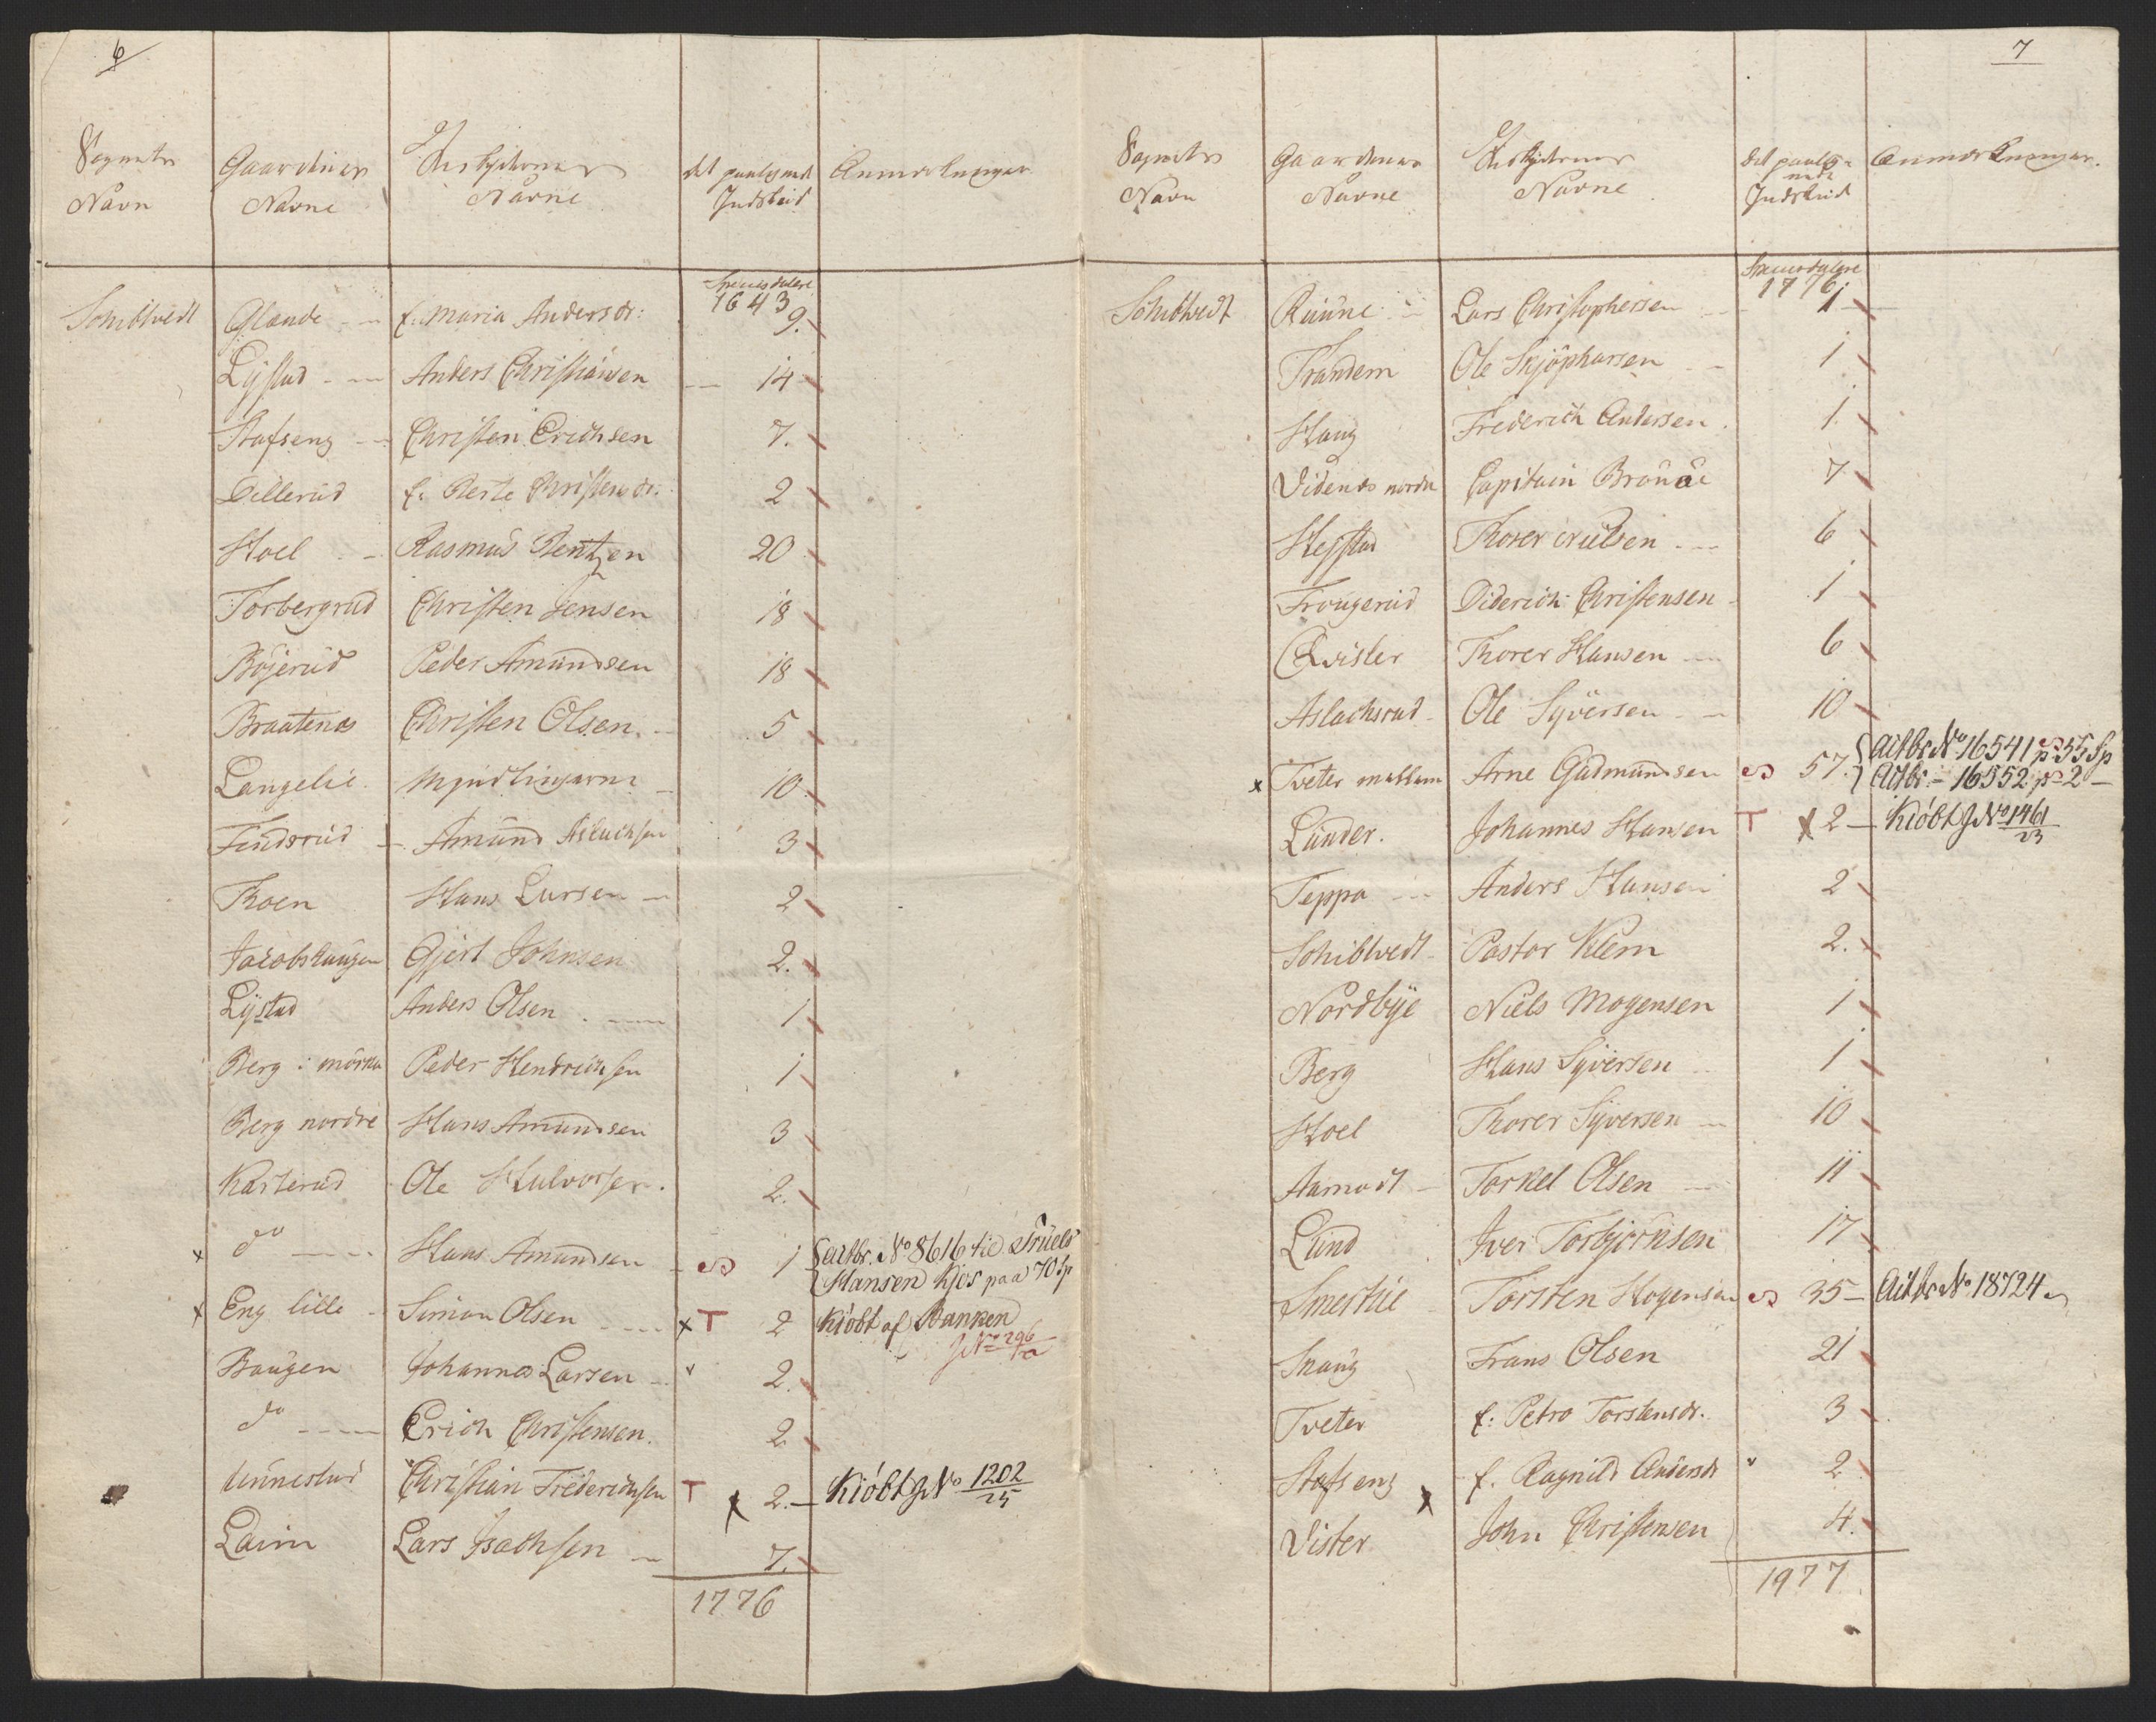 6
Sognets Navn
Gaardenes Navne
Navne
det paalignede Indskud
Anmærkninger
Speciesdalere
1643
Schibtvedt Glende f: Maria Andersdr: 9.
Lystad Anders Christiansen 14
Stafseng Christen Erichsen 7.
Dillerud f: Berte Christensdr: 2
Hoel Rasmus Bentzen 20
Torbergrud Christen Jensen 18
Böjerud Peder Amundsen 18
Braatenes Christen Olsen 5
Langelie Myndlingerne 10
Findsrud Amund Aslachsen 3
Thoen Hans Larsen 2
Jacobshaugen Gjert Johnsen 2.
Lystad Anders Olsen 1
Berg i mörka Peder Hendrichsen 1
Berg nordre Hans Amundsen 3
Kasterud Ole Hulvorsen 2.
x do Hans Amundsen 1 Actbr. No 8616 til Truels
Hansen Kjos paa 70 Sp
x Eng lille Simon Olsen x T 2 Kióbt af Banken
JNo 296
Baugen Johannes Larsen 2.
do Erich Christensen 2
Unnestad Christian Frederichsen T x 2. Kióbt JNo 1202/25
Laim Lars Isachsen 7.
1776
7
Sognets Navn
Gaardenes Navne
Navne
det paalignede Indskud
Anmærkninger
Speciesdalere
1776
Schibtvedt Ruune Lars Christophersen 1
Trandem Ole Skjöphursen 1
Haug Frederich Andersen 1.
Videnes nordre Capitain Braune 7
Hegstad Thorer 6
Frougerud Diderich Christensen 1
Qvister Thorer Hansen 6
Aslachsrud Ole Syversen 10
x Tveter mellem Arne Gudmundsen 57. Actbr No 16541 p 55 Sp
Actbr - 16552 p 2 -
Lunder. Johannes Hansen T x 2 Kióbt JNo 1461/23
Teppa Anders Hansen 2
Schibtvedt Pastor Klem 2.
Nordbye Niels Mogensen 1
Berg Hans Syversen 1
Hoel Thorer Syversen 10
Aamodt Torkel Olsen 11
Lund Iver Torbjörnsen 17
Smertue Torsten Hogensen 35 Actbr No 18724
Skaug Frans Olsen 21
Tveter f: Petro Torstensdr. 3
Stafseng f. Ragnild Andersdr 2
Vister x John Christensen 4.
1977